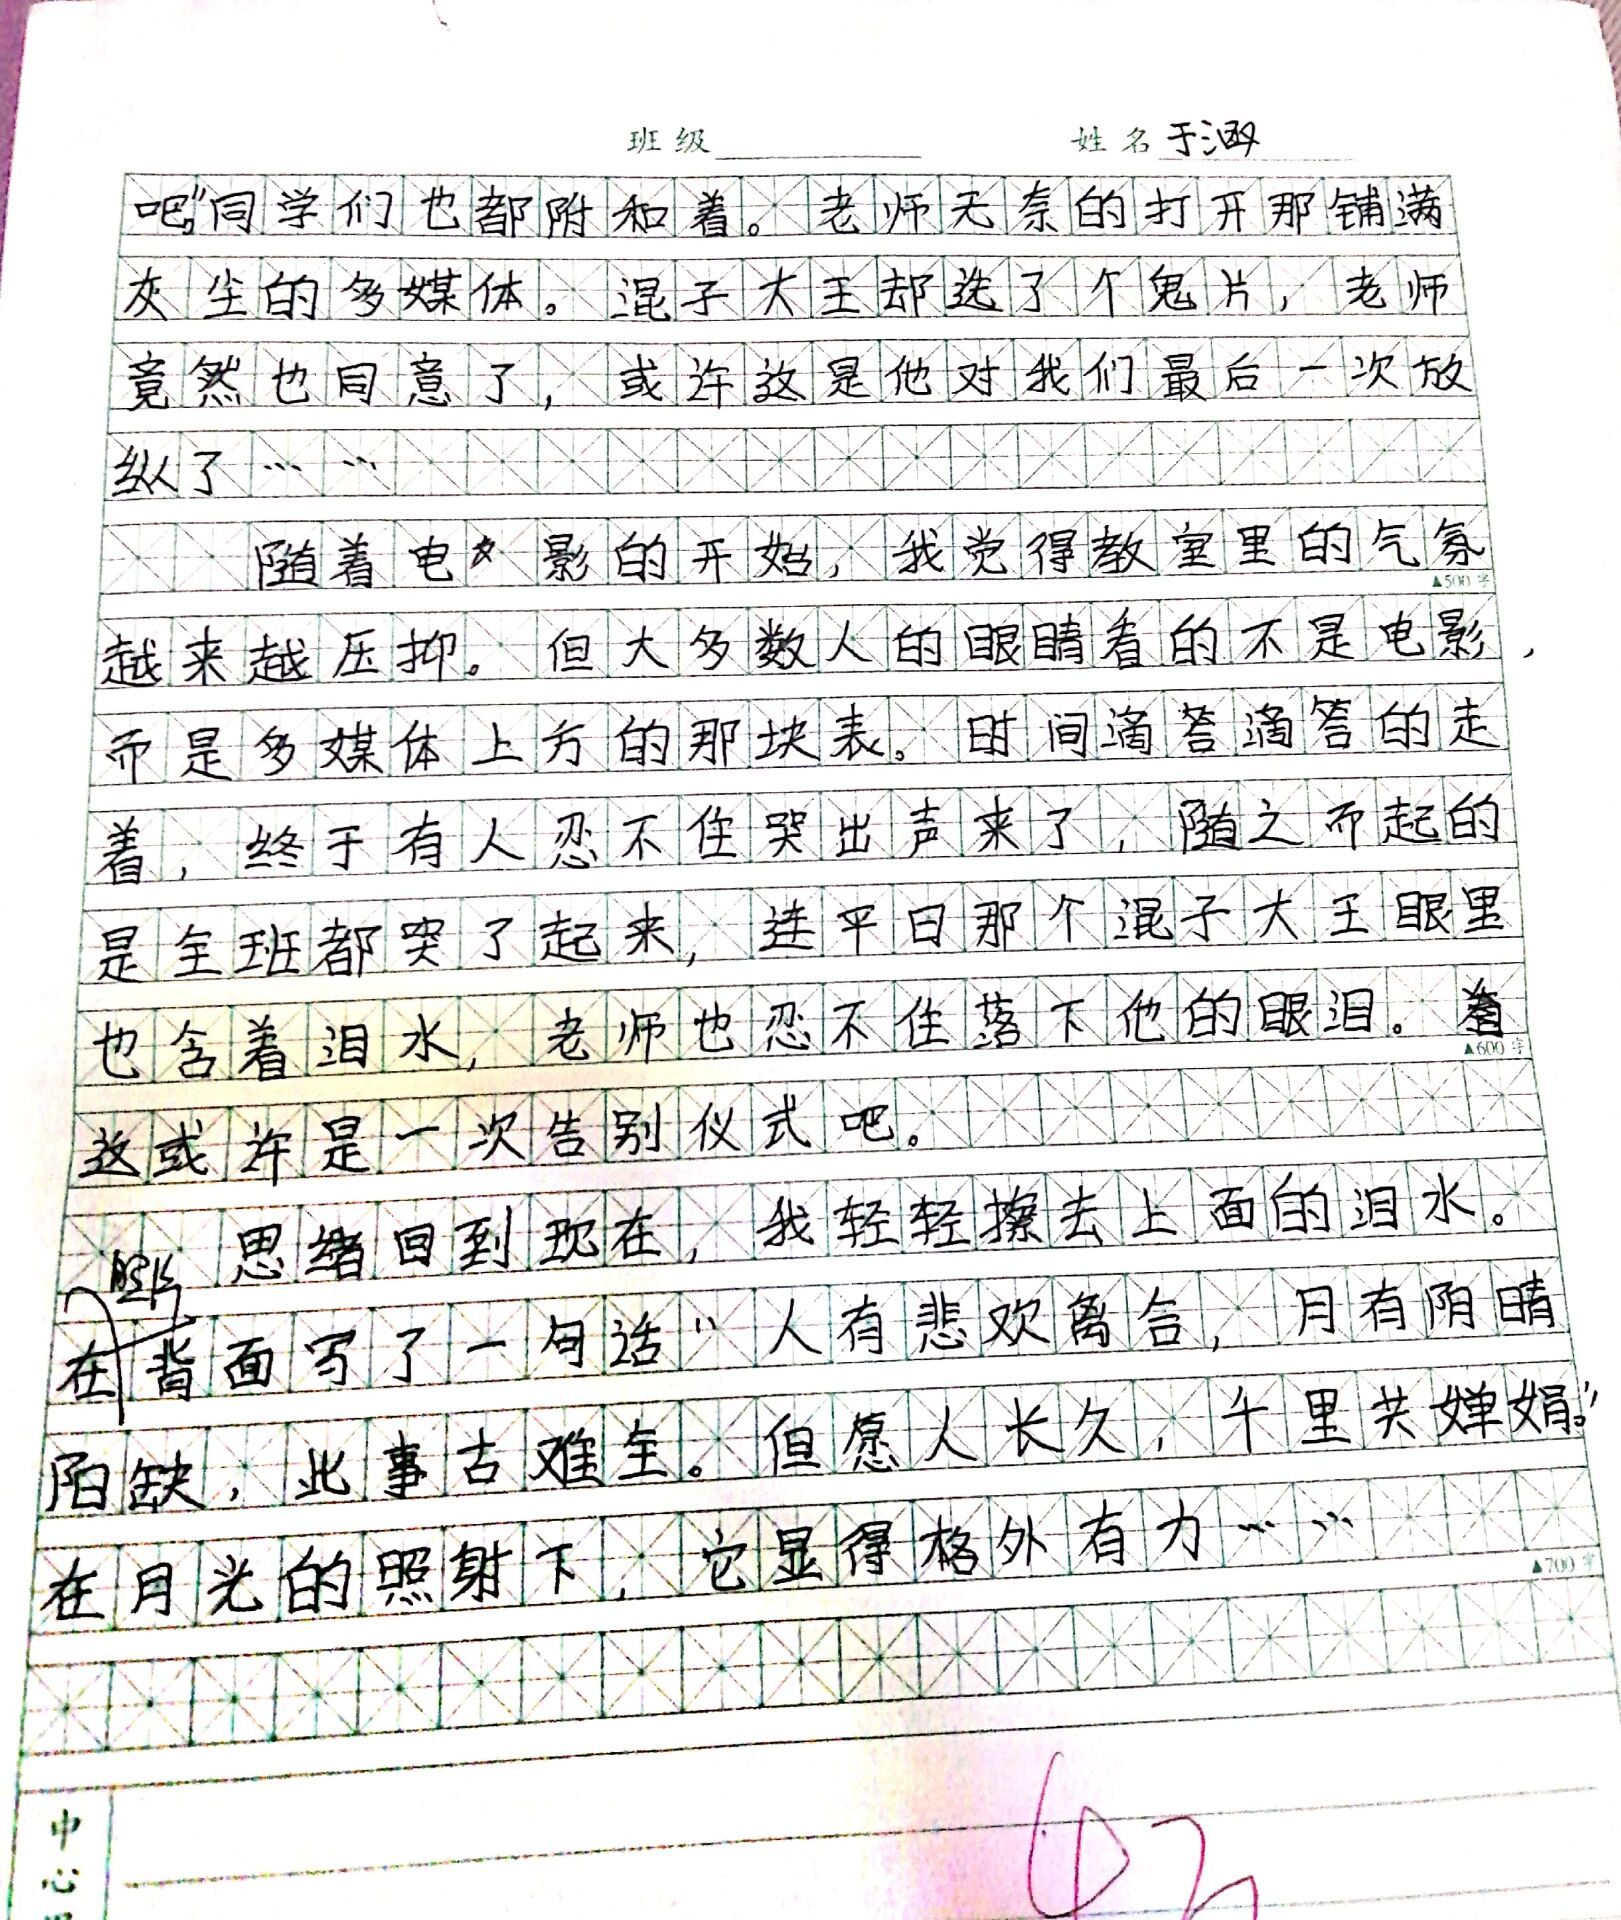 班级 姓名于涵
吧”同学们也都附和着。老师无奈的打开那铺满
灰尘的多媒体。混子大王却选了个鬼片，老师
竟然也同意了，或许这是他对我们最后一次放
纵了……
随着电影的开始，我觉得教室里的气氛
▲500字
越来越压抑。但大多数人的眼睛看的不是电影，
而是多媒体上方的那块表。时间滴答滴答的走
着，终于有人忍不住哭出声来了，随之而起的
是全班都哭了起来，连平日那个混子大王眼里
也含着泪水，老师也忍不住落下他的眼泪。
▲600字
这或许是一次告别仪式吧。
思绪回到现在，我轻轻擦去上面的泪水。
在背面写了一句话“人有悲欢离合，月有阴晴
阳缺，此事古难全。但愿人长久，千里共婵娟。”
在月光的照射下，它显得格外有力……
▲700字
中
心